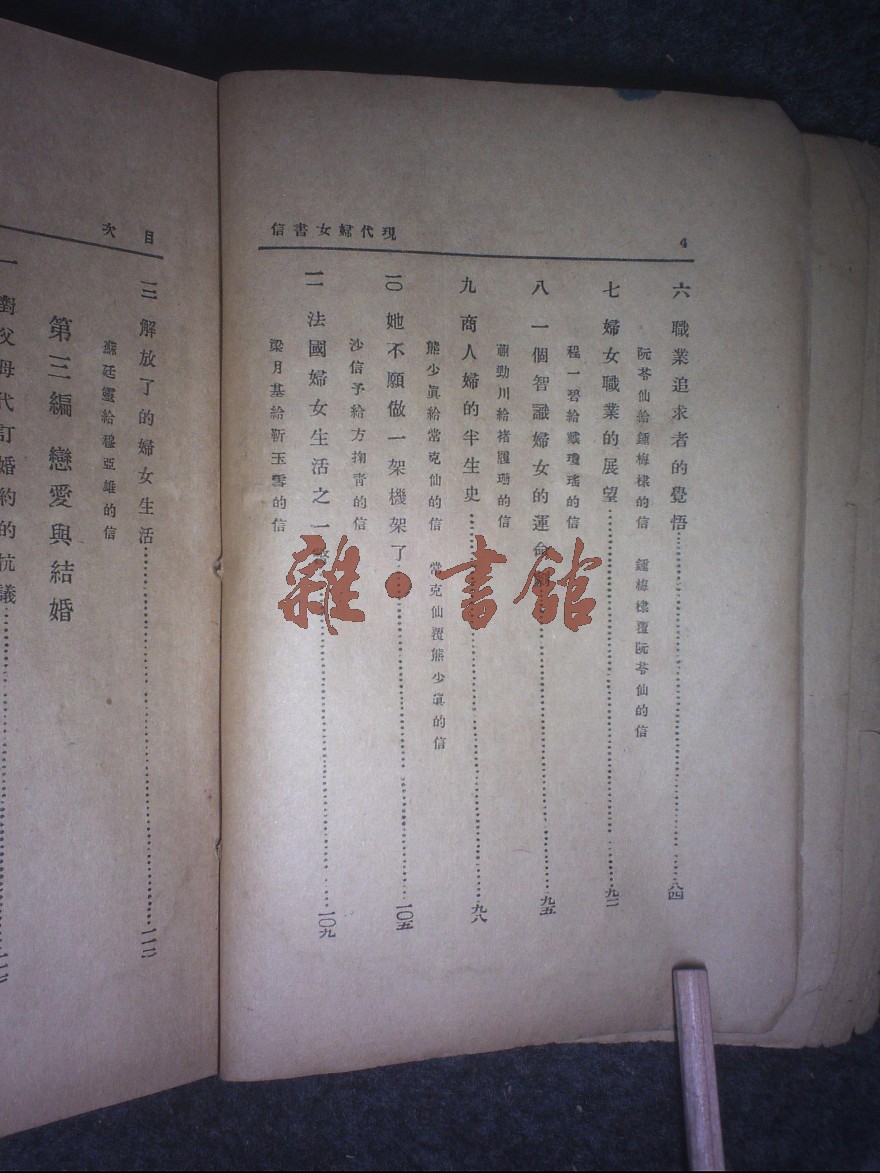 4
現代婦女書信
六 職業追求者的覺悟……八四
阮苓仙給鍾梅棣的信 鍾梅棣覆阮苓仙的信
七 婦女職業的展望……九二
程一碧給戴瓊瑤的信
八 一個智識婦女的運命……九五
給褚履珊的信
九 商人婦的半生史……九八
熊少眞給常克仙的信 常克仙覆熊少眞的信
一〇 她不願做一架機架了……一〇五
沙信予給方掬靑的信
一一 法國婦女生活之一……一〇九
梁月基給靳玉雪的信
目次
解放了的婦女生活……一一二
蘇廷靈給穆亞雄的信
第三編 戀愛與結婚
一 對父母代訂婚約的抗議……
雜·書館